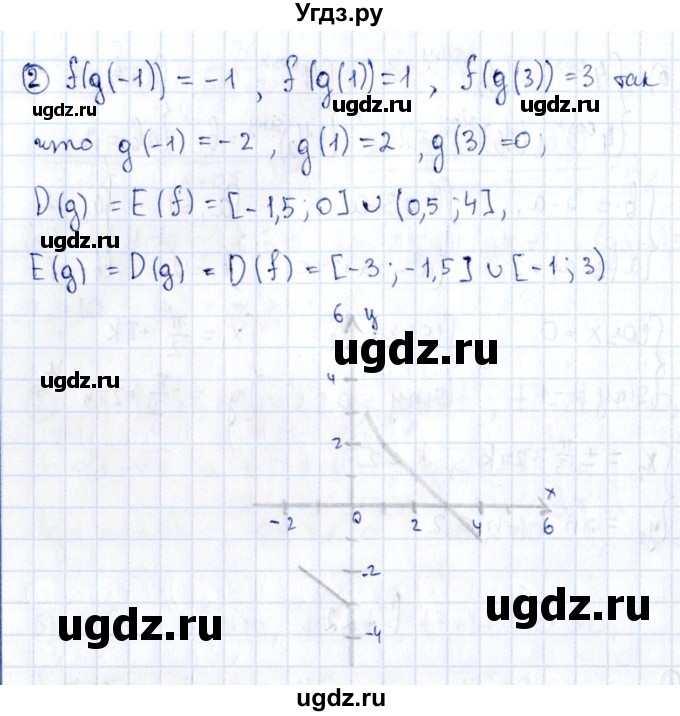 Угдз.ру
② f(g(-1)) = -1, f(g(1)) = 1, f(g(3)) = 3 так
ugdz.ru ugdz.ru ugdz.ru
что g(-1) = -2, g(1) = 2, g(3) = 0;
D(g) = E(f) = [-1,5; 0] ∪ (0,5; 4],
ugdz.ru ugdz.ru
E(g) = D(g) = D(f) = [-3; -1,5] ∪ [-1; 3)
6 y
ugdz.ru
ugdz.ru 4
2
x
-2 0 2 4 6
-2
ugdz.ru ugdz.ru
-4
ugdz.ru